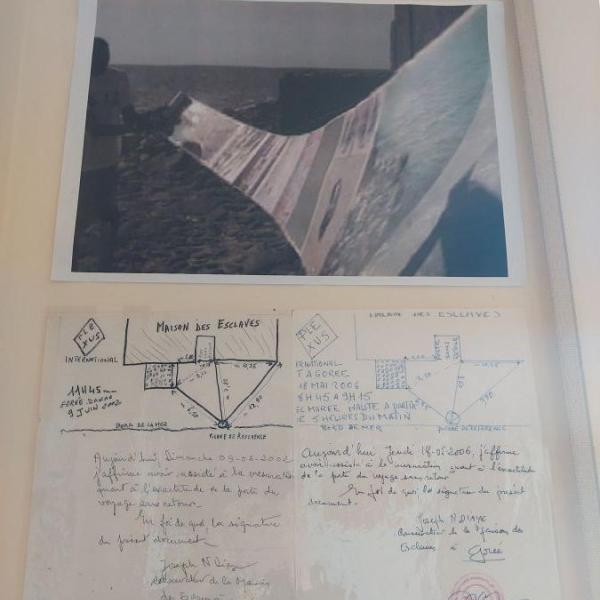 PLE
XUS
INTERNATIONAL
MAISON DES ESCLAVES
11H45
GORÉE. DAKAR
9 JUIN 2002
BORD DE LA MER
PIERRE DE REFERENCE
Aujourd'hui, Dimanche 09-06-2002
j'affirme avoir assisté à la
quant à l'exactitude de la porte du
voyage sans retour.
En foi de quoi la signature
du présent document.
Joseph N'Diaye
conservateur de la Maison
des Esclaves
MAISON DES ESCLAVES
PLE
XUS
GOREE
18 MAI 2006
8H45 A 9H15
MAREE HAUTE A PARTIR
5 HEURES DU MATIN
BORD DE MER
PORTE
SANS
RETOUR
PIERRE DE REFERENCE
Aujourd'hui Jeudi 18-05-2006, j'affirme
avoir assisté à la quant à l'exactitude
de la porte du voyage sans retour
En foi de quoi la signature du présent
document.
Joseph NDIAYE
Conservateur de la Maison des
Esclaves à Gorée